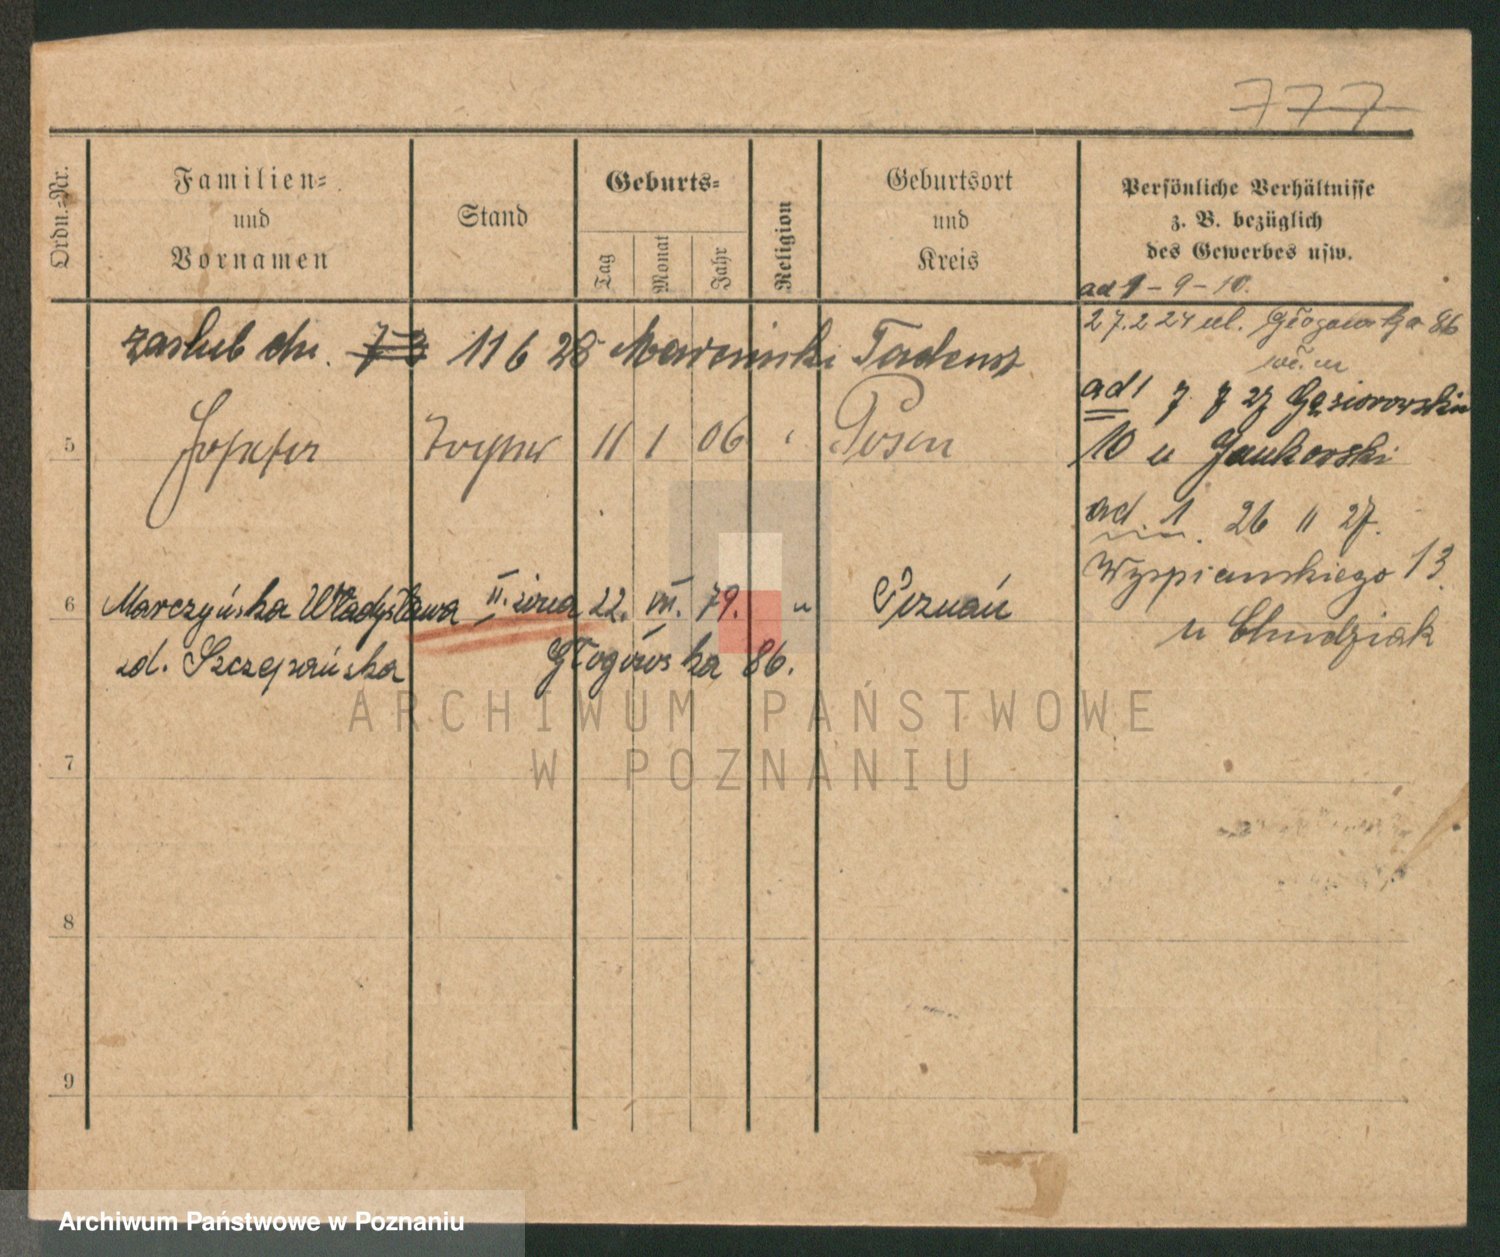 777
Ordn.-Nr.
Familien-
und
Vornamen
Stand
Geburts-
Tag
Monat
Jahr
Religion
Geburtsort
und
Kreis
Persönliche Verhältnisse
z. B. bezüglich
des Gewerbes usw.
ad 1 - 9 - 10.
27.2 24 ul. Głogowska 86
zaślub dn. 11 6 28 Tadeusz
ad 1 7 7 27 Gąsiorowskich
5 Josefa Tochter 11 1 06 Posen
10 u Jankowski
ad. 1. 26 11 27.
Wyspianskiego 13
6 Marczyńska Władysława II. żona 22. VII. 79. " Poznań
u Chudziak
zd. Szczepańska Głogowska 86.
7
8
9
ARCHIWUM PAŃSTWOWE
W POZNANIU
Archiwum Państwowe w Poznaniu